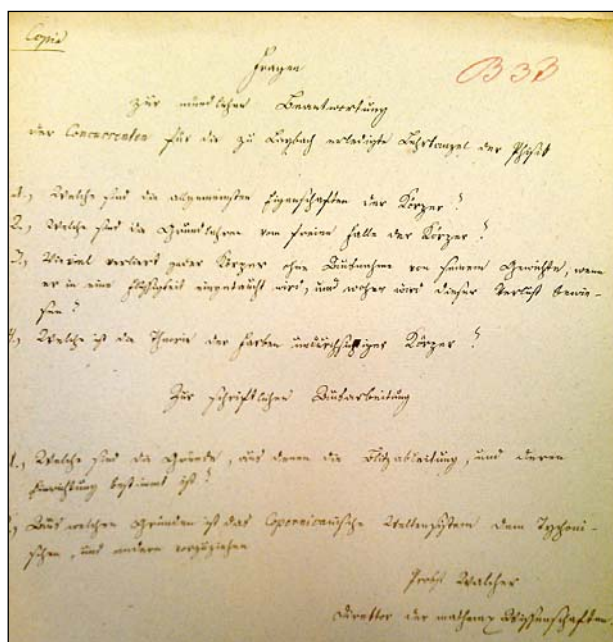 Copie
B 3 B
Fragen
zur mündlichen Beantwortung
der Concurrenten für die zu Laybach erledigte Lehrkanzel der Phisik
1., Welche sind die allgemeinsten Eigenschaften der Körper?
2., Welche sind die Grundlehren vom freien Falle der Körper?
3., Wieviel verliert jeder Körper ohne Ausnahme von seinem Gewichte, wenn
er in eine Flüssigkeit eingetaucht wird, und woher wird dieser Verlust bewie-
sen?
4., Welche ist die Theorie der Farben undurchsichtiger Körper?
Zur schriftlichen Ausarbeitung
1., Welche sind die Gründe, aus denen die Blitzableitung, und deren
Einrichtung bestimmt ist?
Aus welchen Gründen ist das Copernicanische Weltensistem dem Tychoni-
schen, und andern vorzuziehen
Walcher
Direktor der mathem Wissenschaften.